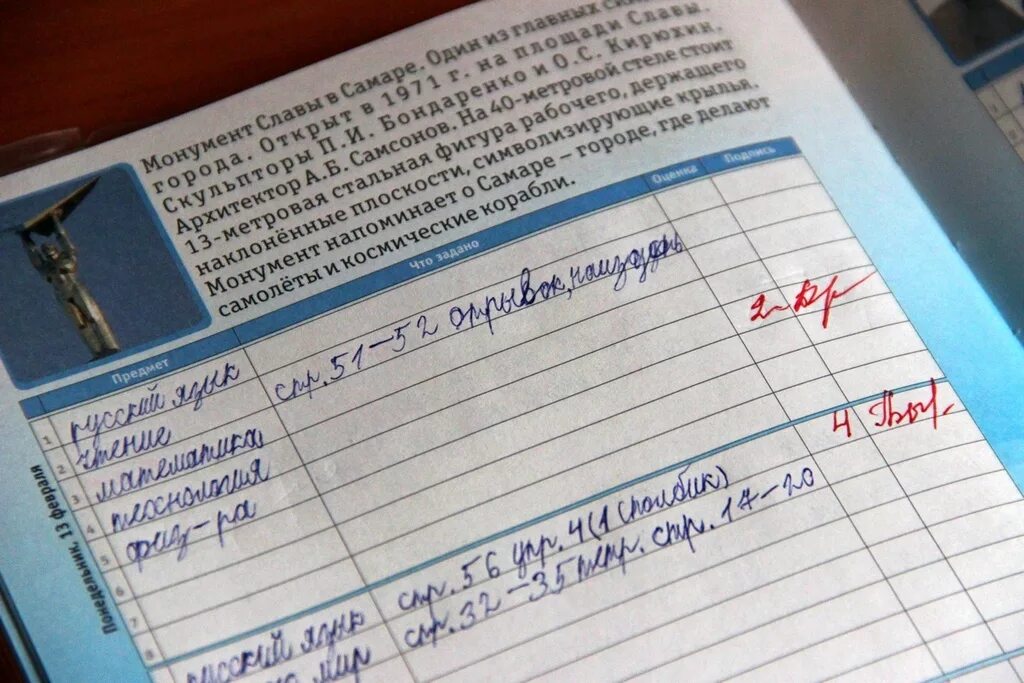 Монумент Славы в Самаре. Один из главных
города. Открыт в 1971 г. на площади Славы.
Скульпторы П.И. Бондаренко и О.С. Кирюхин.
Архитектор А.Б. Самсонов. На 40-метровой стеле стоит
13-метровая стальная фигура рабочего, держащего
наклонённые плоскости, символизирующие крылья.
Монумент напоминает о Самаре – городе, где делают
самолёты и космические корабли.
Предмет Что задано Оценка Подпись
Понедельник, 13 февраля
1 русский язык
2 чтение стр. 51-52 отрывок, наизусть
3 математика 2
4 технология
5 физ-ра
6
7
8
4
русский язык стр. 56 упр. 4 (1 столбик)
мир стр. 32-35 тетр. стр. 17-20